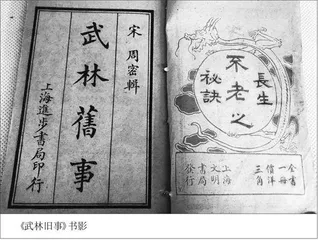 宋 周密輯
武林舊事
上海進步書局印行
長生
不老之
秘訣
全書一冊
價洋三角
上海文明書局發行
《武林旧事》书影